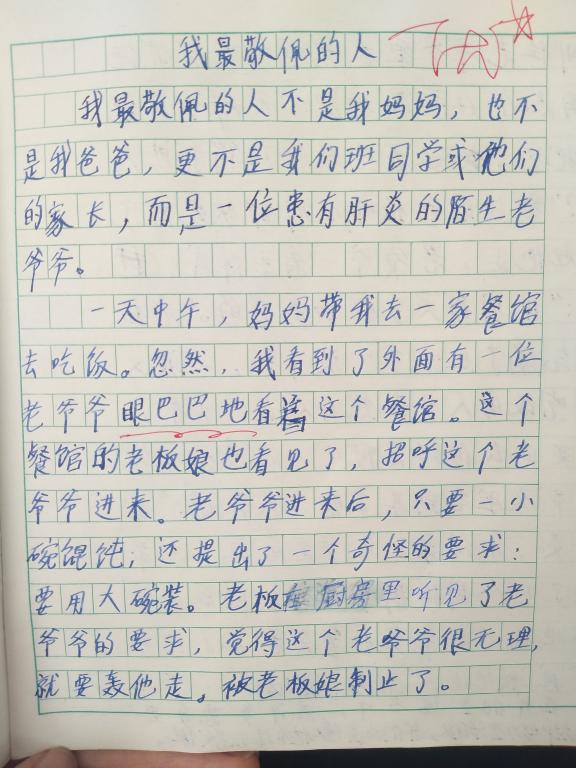 我最敬佩的人
我最敬佩的人不是我妈妈，也不
是我爸爸，更不是我们班同学或他们
的家长，而是一位患有肝炎的陌生老
爷爷。
一天中午，妈妈带我去一家餐馆
去吃饭。忽然，我看到了外面有一位
老爷爷眼巴巴地看着这个餐馆。这个
餐馆的老板娘也看见了，招呼这个老
爷爷进来。老爷爷进来后，只要一小
碗馄饨，还提出了一个奇怪的要求：
要用大碗装。老板在厨房里听见了老
爷爷的要求，觉得这个老爷爷很无理，
就要轰他走。被老板娘制止了。